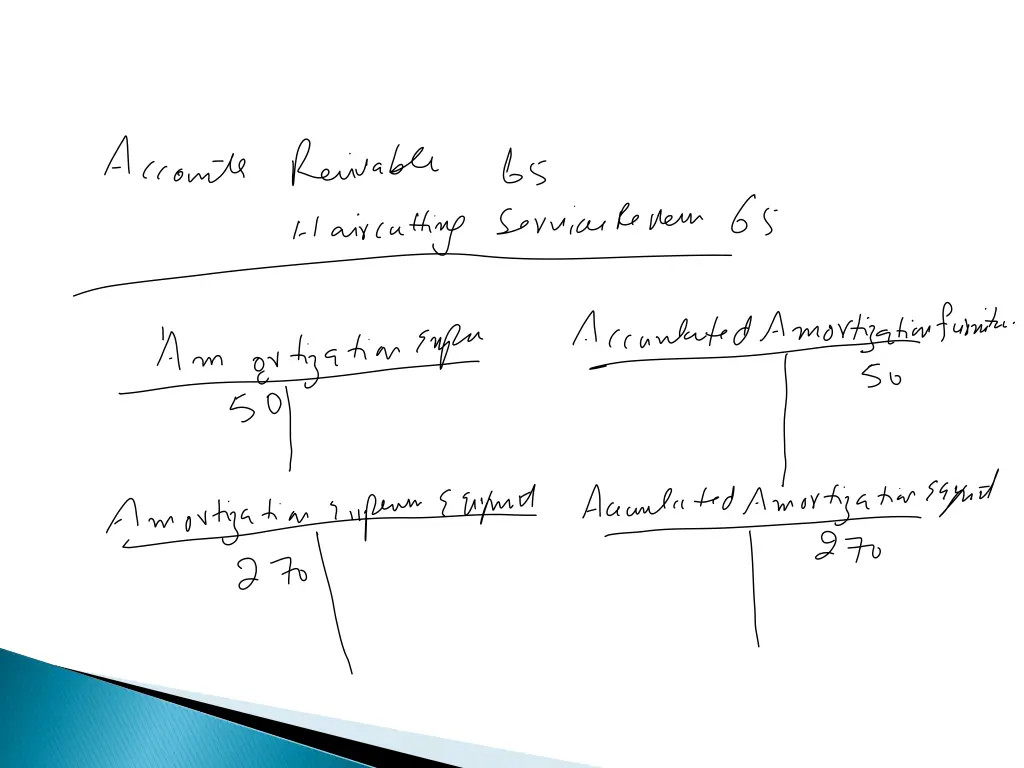 Accounts Receivable 65
Haircutting Services Revenue 65
Amortization Expen
50
Accumulated Amortization furnitu.
50
Amortization Expense Equipmt
270
Accumulated Amortization Equipmt
270